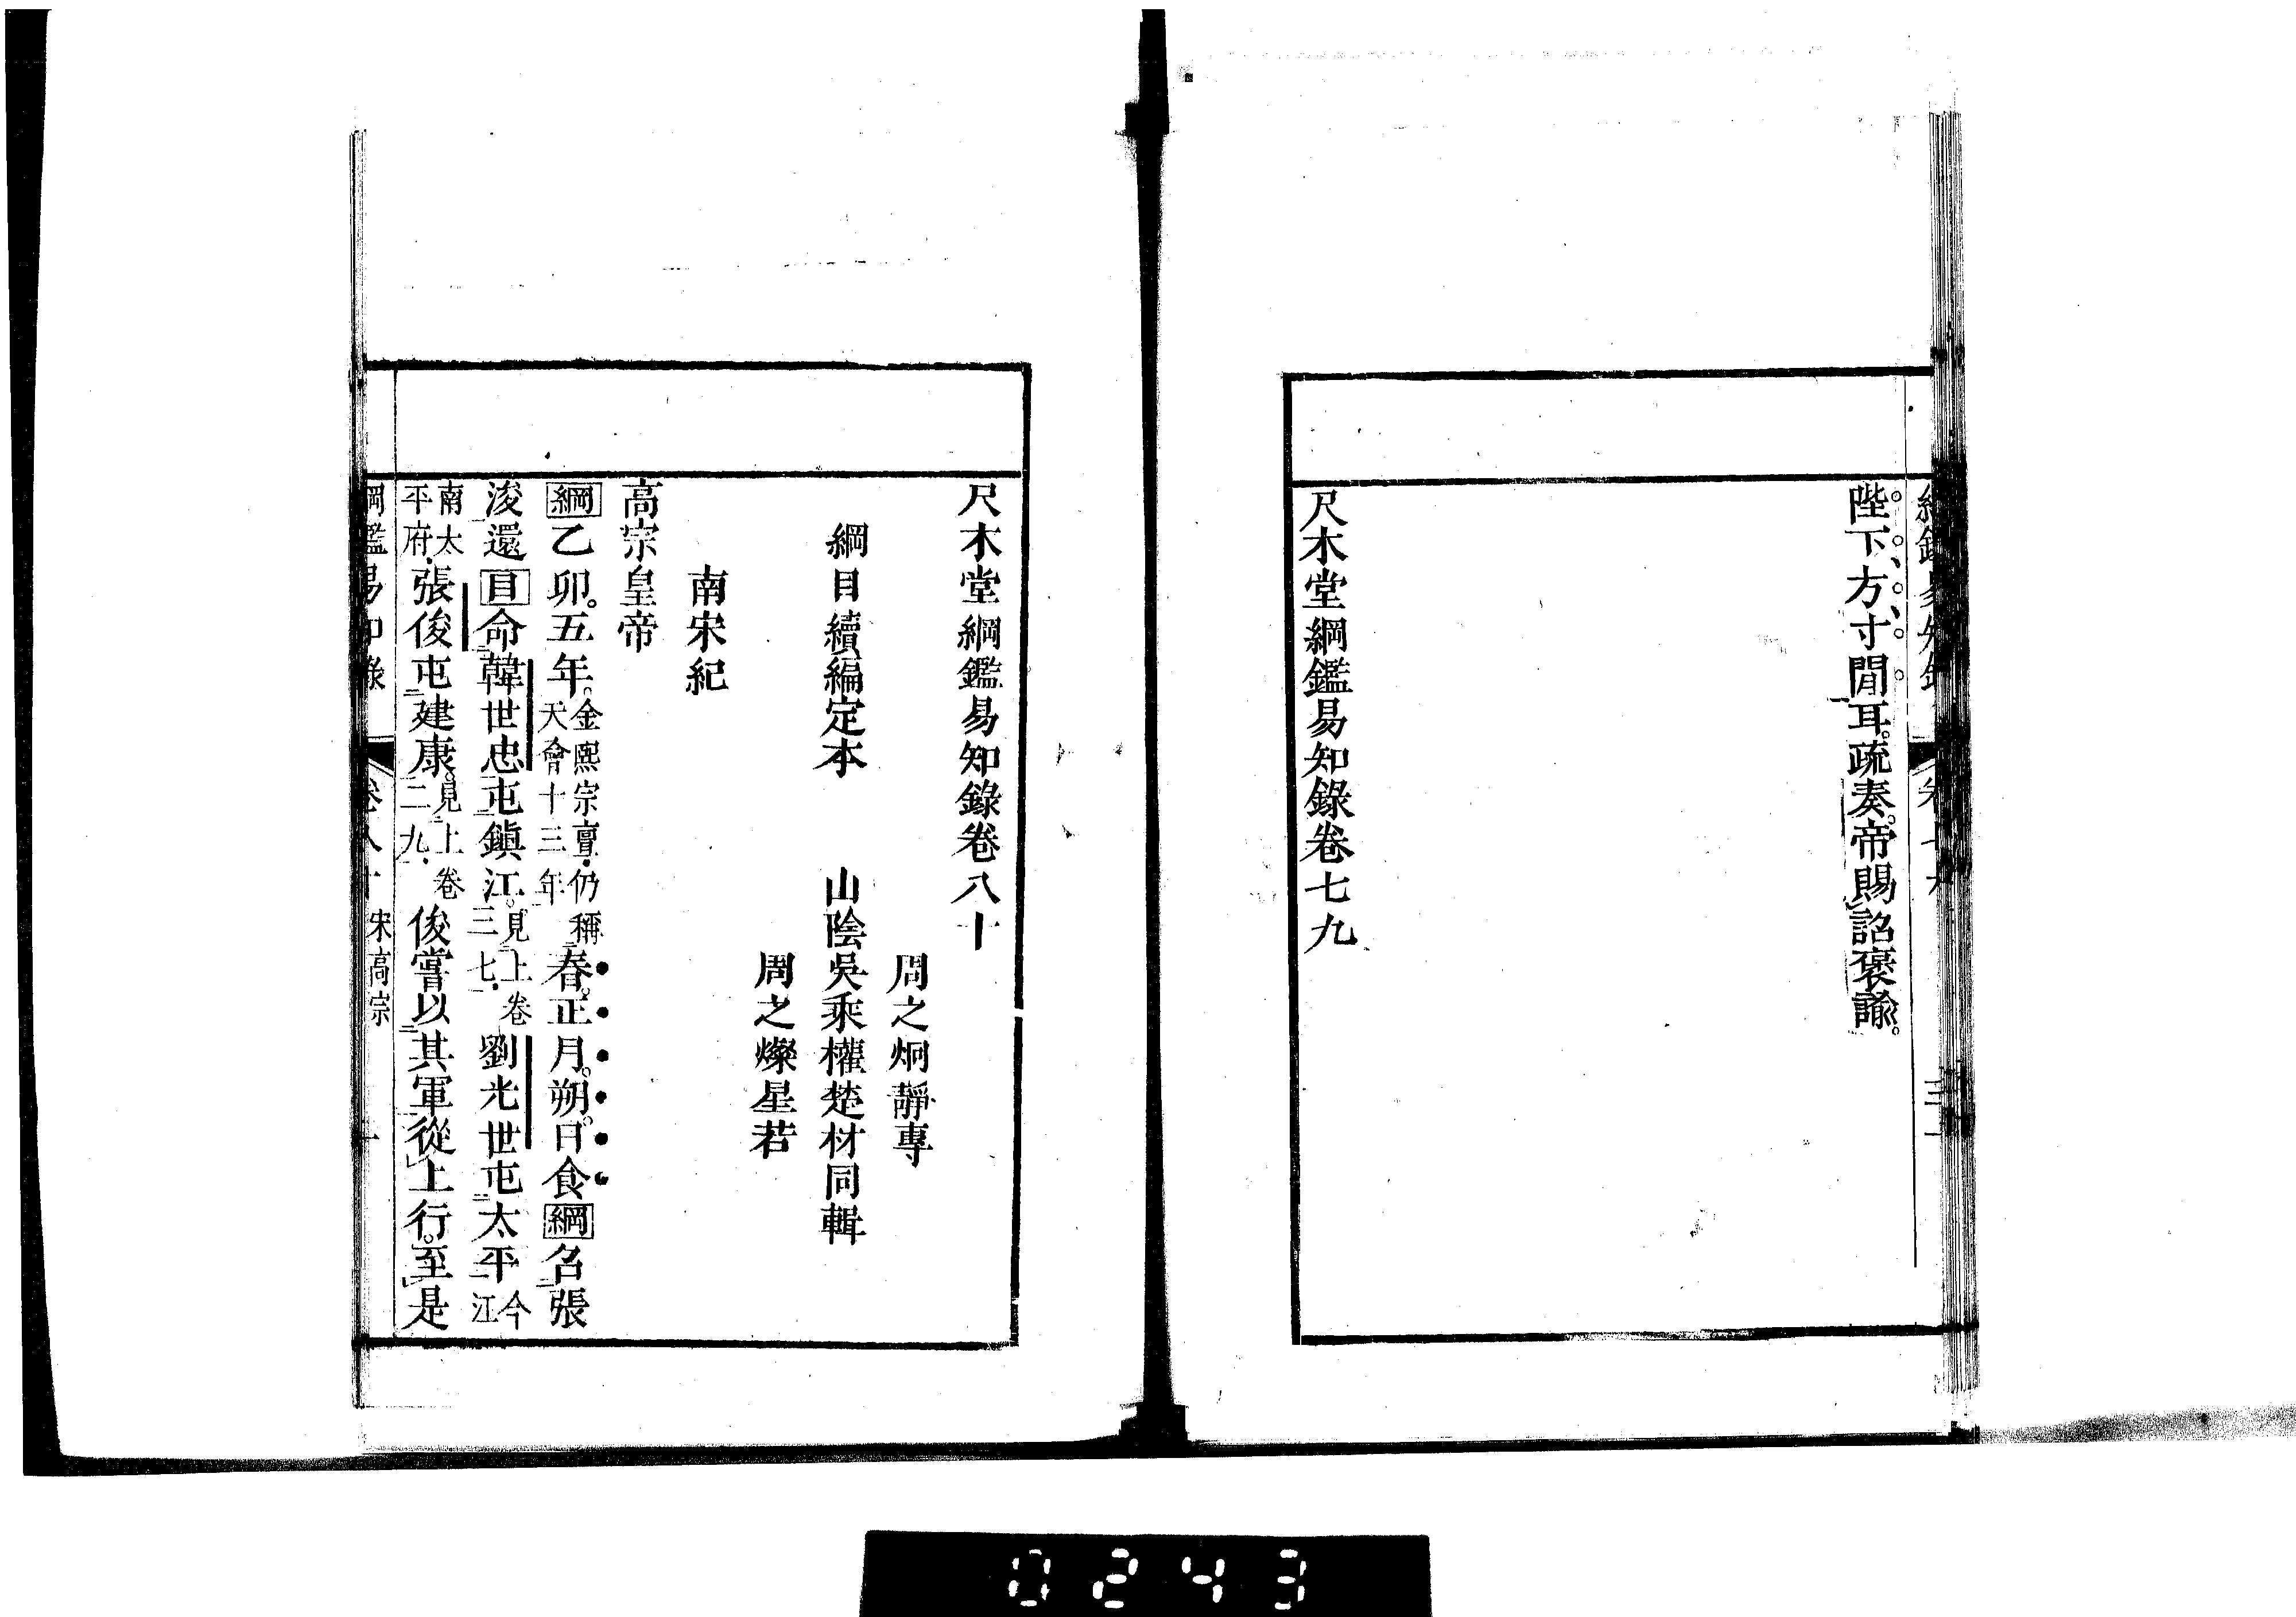 陛下方寸閒耳。疏奏。帝賜詔褒諭。
尺木堂綱鑑易知錄卷七九
尺木堂綱鑑易知錄卷八十
周之炯靜專
綱目續編定本 山陰吳乘權楚材同輯
周之燦星若
南宋紀
高宗皇帝
綱乙卯。五年。金熙宗亶仍稱天會十三年春。正月。朔。日食綱召張
浚還目命韓世忠屯鎭江。見上卷三七劉光世屯太平今江
南太平府張俊屯建康。見上卷二九俊嘗以其軍從上行。至是
宋高宗
0243